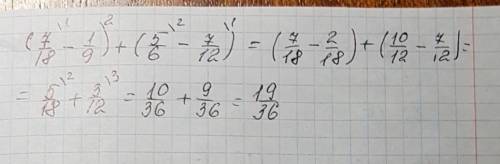 (7/18 \1 − 1/9 \2) + (5/6 \2 − 7/12 \1) = (7/18 − 2/18) + (10/12 − 7/12) =
= 5/18 \2 + 3/12 \3 = 10/36 + 9/36 = 19/36